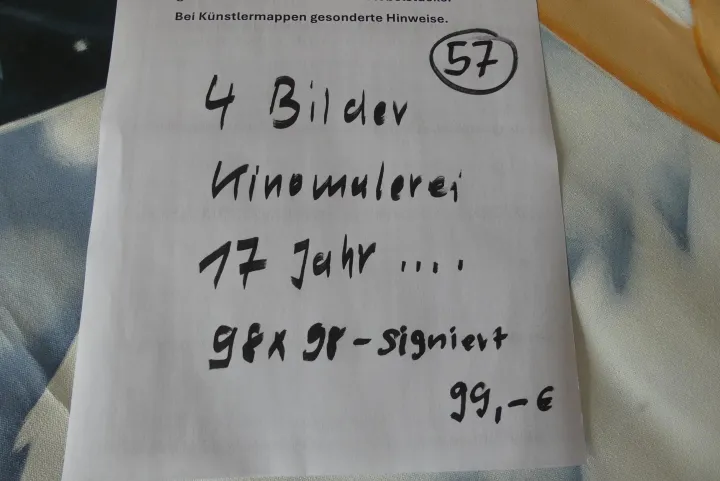 Bei Künstlermappen gesonderte Hinweise.
57
4 Bilder
Kinomalerei
17 Jahr ....
98x98-signiert
99,-€